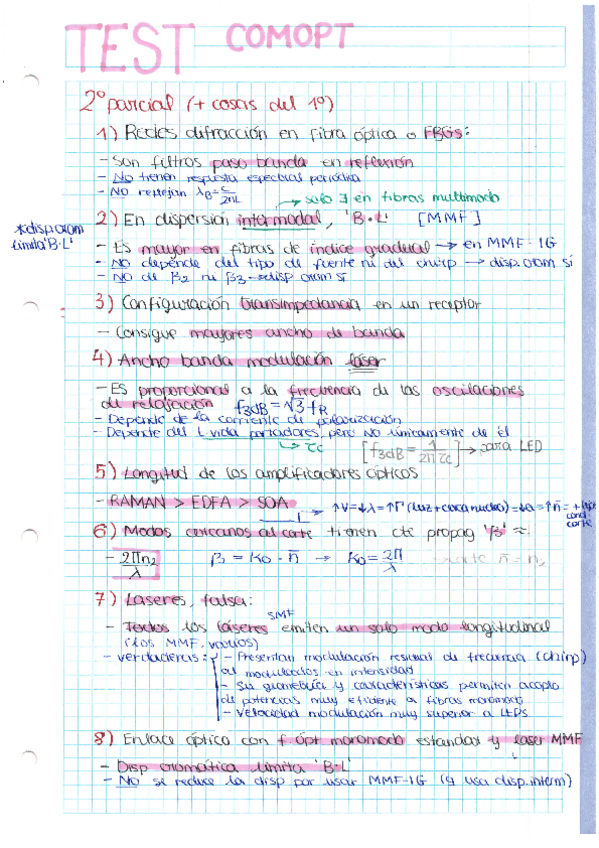 TEST COMOPT
2º parcial (+ cosas del 1º)
1) Redes difracción en fibra óptica o FBGs:
- Son filtros paso banda en reflexión
- NO tienen respuesta espectral periódica
- NO reflejan λB = c/2nL
→ solo ∃ en fibras multimodo
2) En dispersión intermodal, 'B·L' [MMF]
*disp crom limita 'B·L'
- Es mayor en fibras de índice gradual → en MMF-IG
- NO depende del tipo de fuente ni del chirp → disp. crom sí
- NO de β2 ni β3 → disp crom sí
3) Configuración transimpedancia en un receptor
- Consigue mayores ancho de banda
4) Ancho banda modulación láser
- Es proporcional a la frecuencia de las oscilaciones
de relajación f3dB = √3 fR
- Depende de la corriente de polarización
- Depende del t. vida portadores, pero NO únicamente de él
→ τc [f3dB = 1/2πτc] → para LED
5) Longitud de los amplificadores ópticos
- RAMAN > EDFA > SOA
↑V = ↓λ = ↑Γ (luz + cerca nucleo) = ↓a = ↑n̄ = +
cond
corte
6) Modos cercanos al corte tienen cte propag 'β' ≈
- 2πn2/λ β = K0 · n̄ → K0 = 2π/λ n̄ = n2
7) Laseres, falsa:
SMF
- Todos los láseres emiten un solo modo longitudinal
(los MMF, varios)
- verdaderas: - Presentan modulación residual de frecuencia (chirp)
al modularlos en intensidad
- Su geometría y características permiten acoplo
de potencias muy eficiente a fibras monomodo
- Velocidad modulación muy superior a LEDs
8) Enlace óptico con f. ópt monomodo estandar y laser MMF
- Disp cromática limita 'B·L'
- NO se reduce la disp por usar MMF-IG (y usa disp. interm)